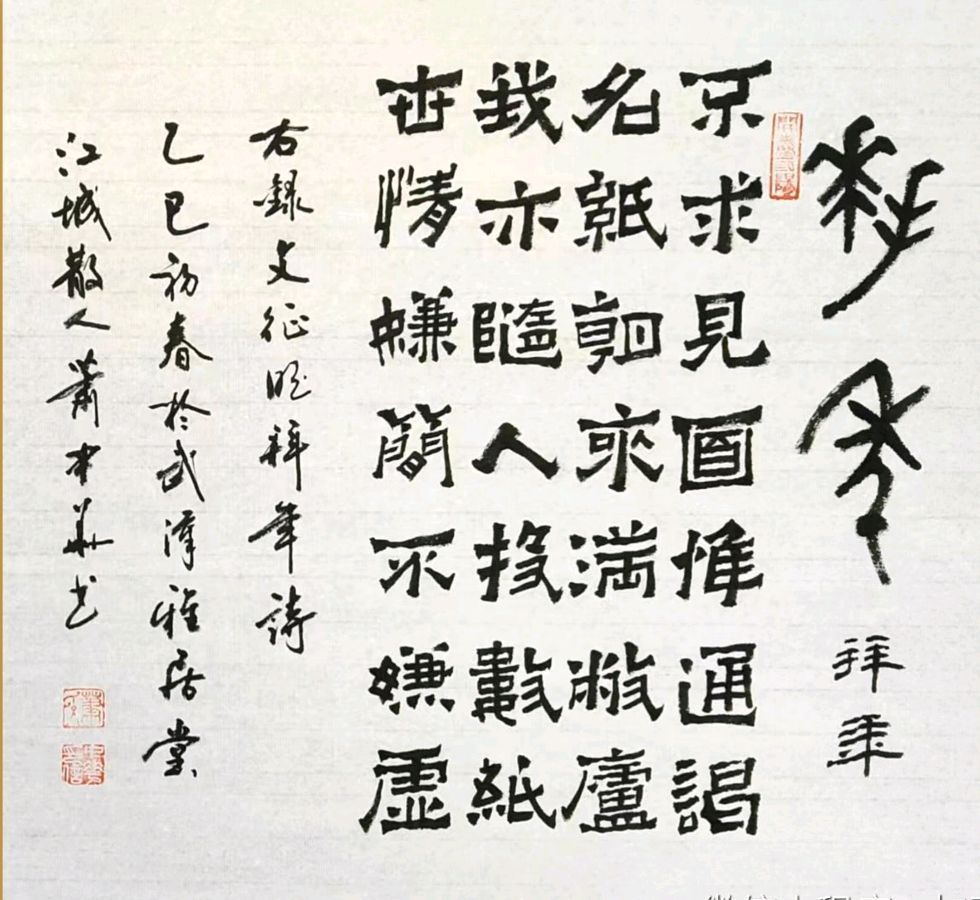 拜年
拜年
不求見面惟通謁
名紙朝來滿敝廬
我亦隨人投數紙
世情嫌簡不嫌虛
右錄文征明拜年詩
乙巳初春於武漢雅居堂
江城散人蕭中華书